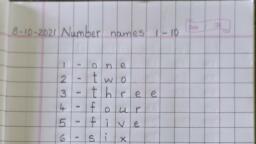 8-10-2021 Number names 1-10
1 - one
2 - two
3 - three
4 - four
5 - five
6 - six